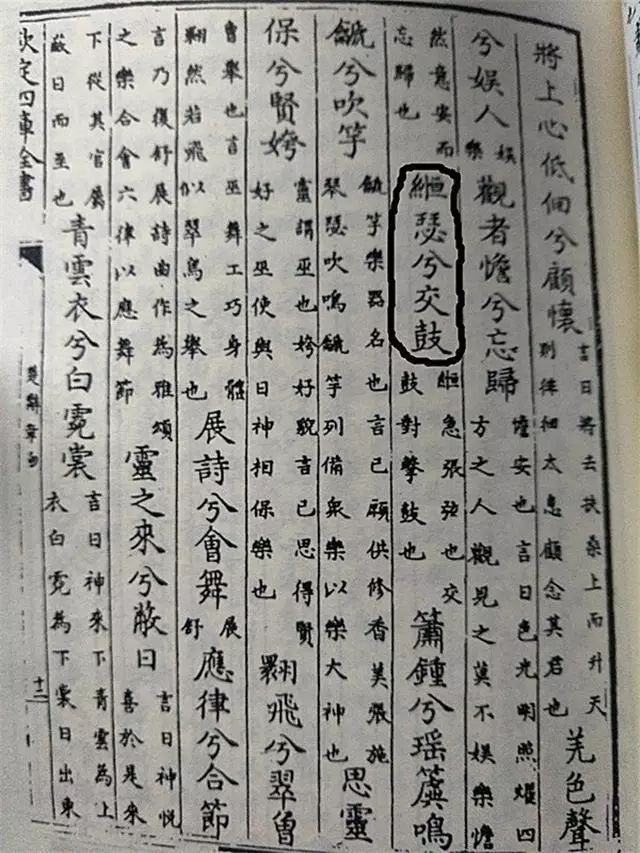 將上心低佪兮顧懷言日將去扶桑上而升天則徘徊太息顧念其君也羌色聲
兮娱人娱樂觀者憺兮忘歸憺安也言日色光明照燿四方之人觀見之莫不娱樂憺
然意安而忘歸也縆瑟兮交鼓縆急張弦也交鼓對擊鼓也簫鍾兮瑶簴鳴
䶵兮吹竽䶵竽樂器名也言已願供修香美張施琴瑟吹鳴䶵竽列備衆樂以樂大神也思靈
保兮賢姱靈謂巫也姱好貌言已思得賢好之巫使與日神相保樂也翾飛兮翠曾
曾舉也言巫舞工巧身體翾然若飛似翠鳥之舉也展詩兮會舞展舒應律兮合節
言乃復舒展詩曲作為雅頌之樂合會六律以應舞節靈之來兮蔽日言日神悦喜於是來
下從其官屬蔽日而至也青雲衣兮白霓裳言日神來下青雲為上衣白霓為下裳日出東
欽定四庫全書
楚辭章句
十二